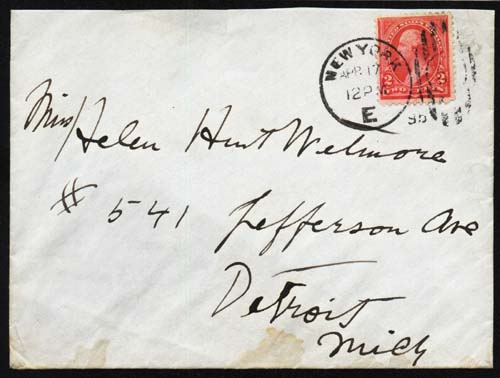 NEW YORK
APR 17
12 P M
E
95
2 2
Miss Helen Hunt Wetmore
# 541 Jefferson Ave
Detroit
Mich